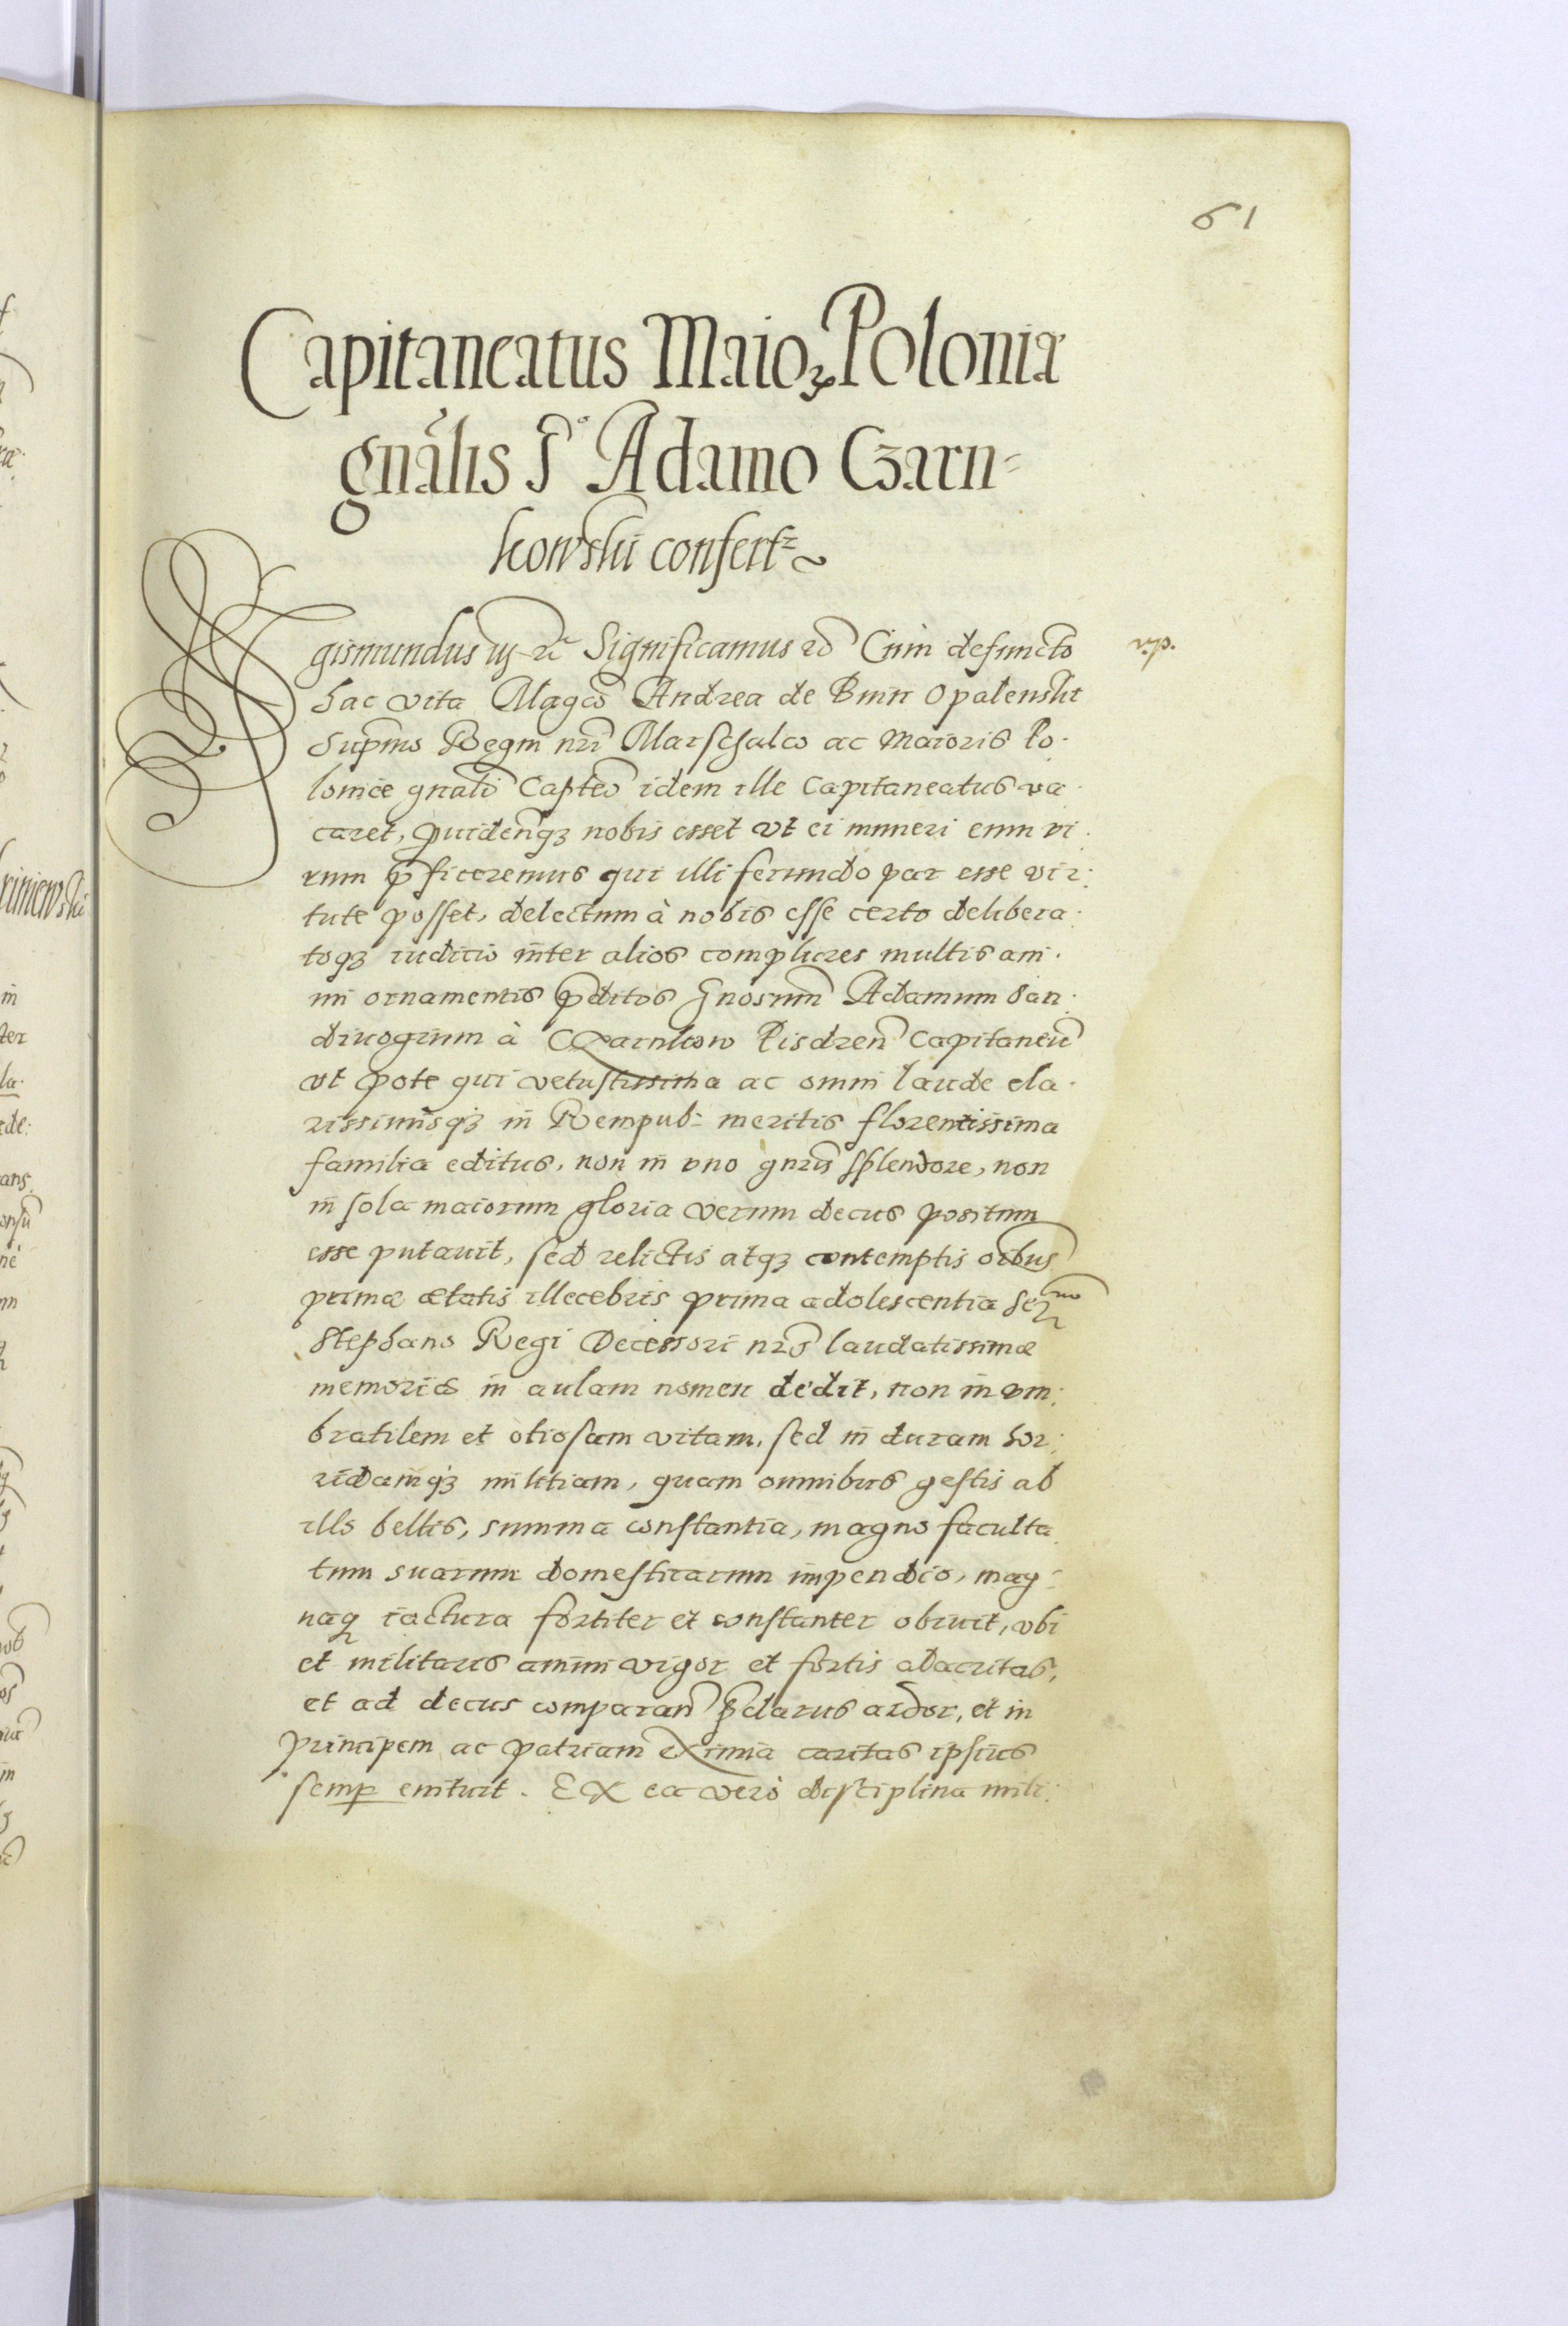 61
Capitaneatus Maioꝝ Poloniæ
gnãlis Gº Adamo Czarn=
kowski confertꝛ
Sigismundus iij etc̃ Significamus etc̃ Cum defuncto
hac vita Magco Andrea de Bnin Opalenski
Supmo Regni nrĩ Marschalco ac Maioris Po.
loniæ gnali Capteo idem ille Capitaneatus va.
caret, Quidemqꝫ nobis esset vt ei muneri eum vi.
rum p̃ficeremus qui illi ferundo par esse vir:
tute posset, delectum à nobis esse certo delibera.
toqꝫ iuditio inter alios complures multis ani.
mi ornamentis p̃ditos Gnosum Adamum San.
diuogium à CZarnkow Pisdren̄ Capitaneũ
vt pote qui vetustissima ac omni laude cla.
rissimisqꝫ in Rempub: meritis florentissima
familia editus, non in vno gnris splendore, non
in sola maiorum gloria verum decus positum
esse putauit, sed relictis atqꝫ contemptis oibus
primæ ætatis illecebris prima adolescentia Serᵐᵒ
Stephano Regi Decessori nrõ laudatissimæ
memoriæ in aulam nomen dedit, non in vm:
bratilem et otiosam vitam, sed in duram hor:
ridamqꝫ militiam, quam omnibus gestis ab
illo bellis, summa constantia, magno faculta.
tum suarum domesticarum impendio, mag:
naqꝫ iactura fortiter et constanter obiuit, vbi
et militaris animi vigor et fortis alacritas,
et ad decus comparan̄ p̃clarus ardor, et in
Principem ac patriam eximia caritas ipsius
semꝑ enituit. EX ea verò disciplina mili: